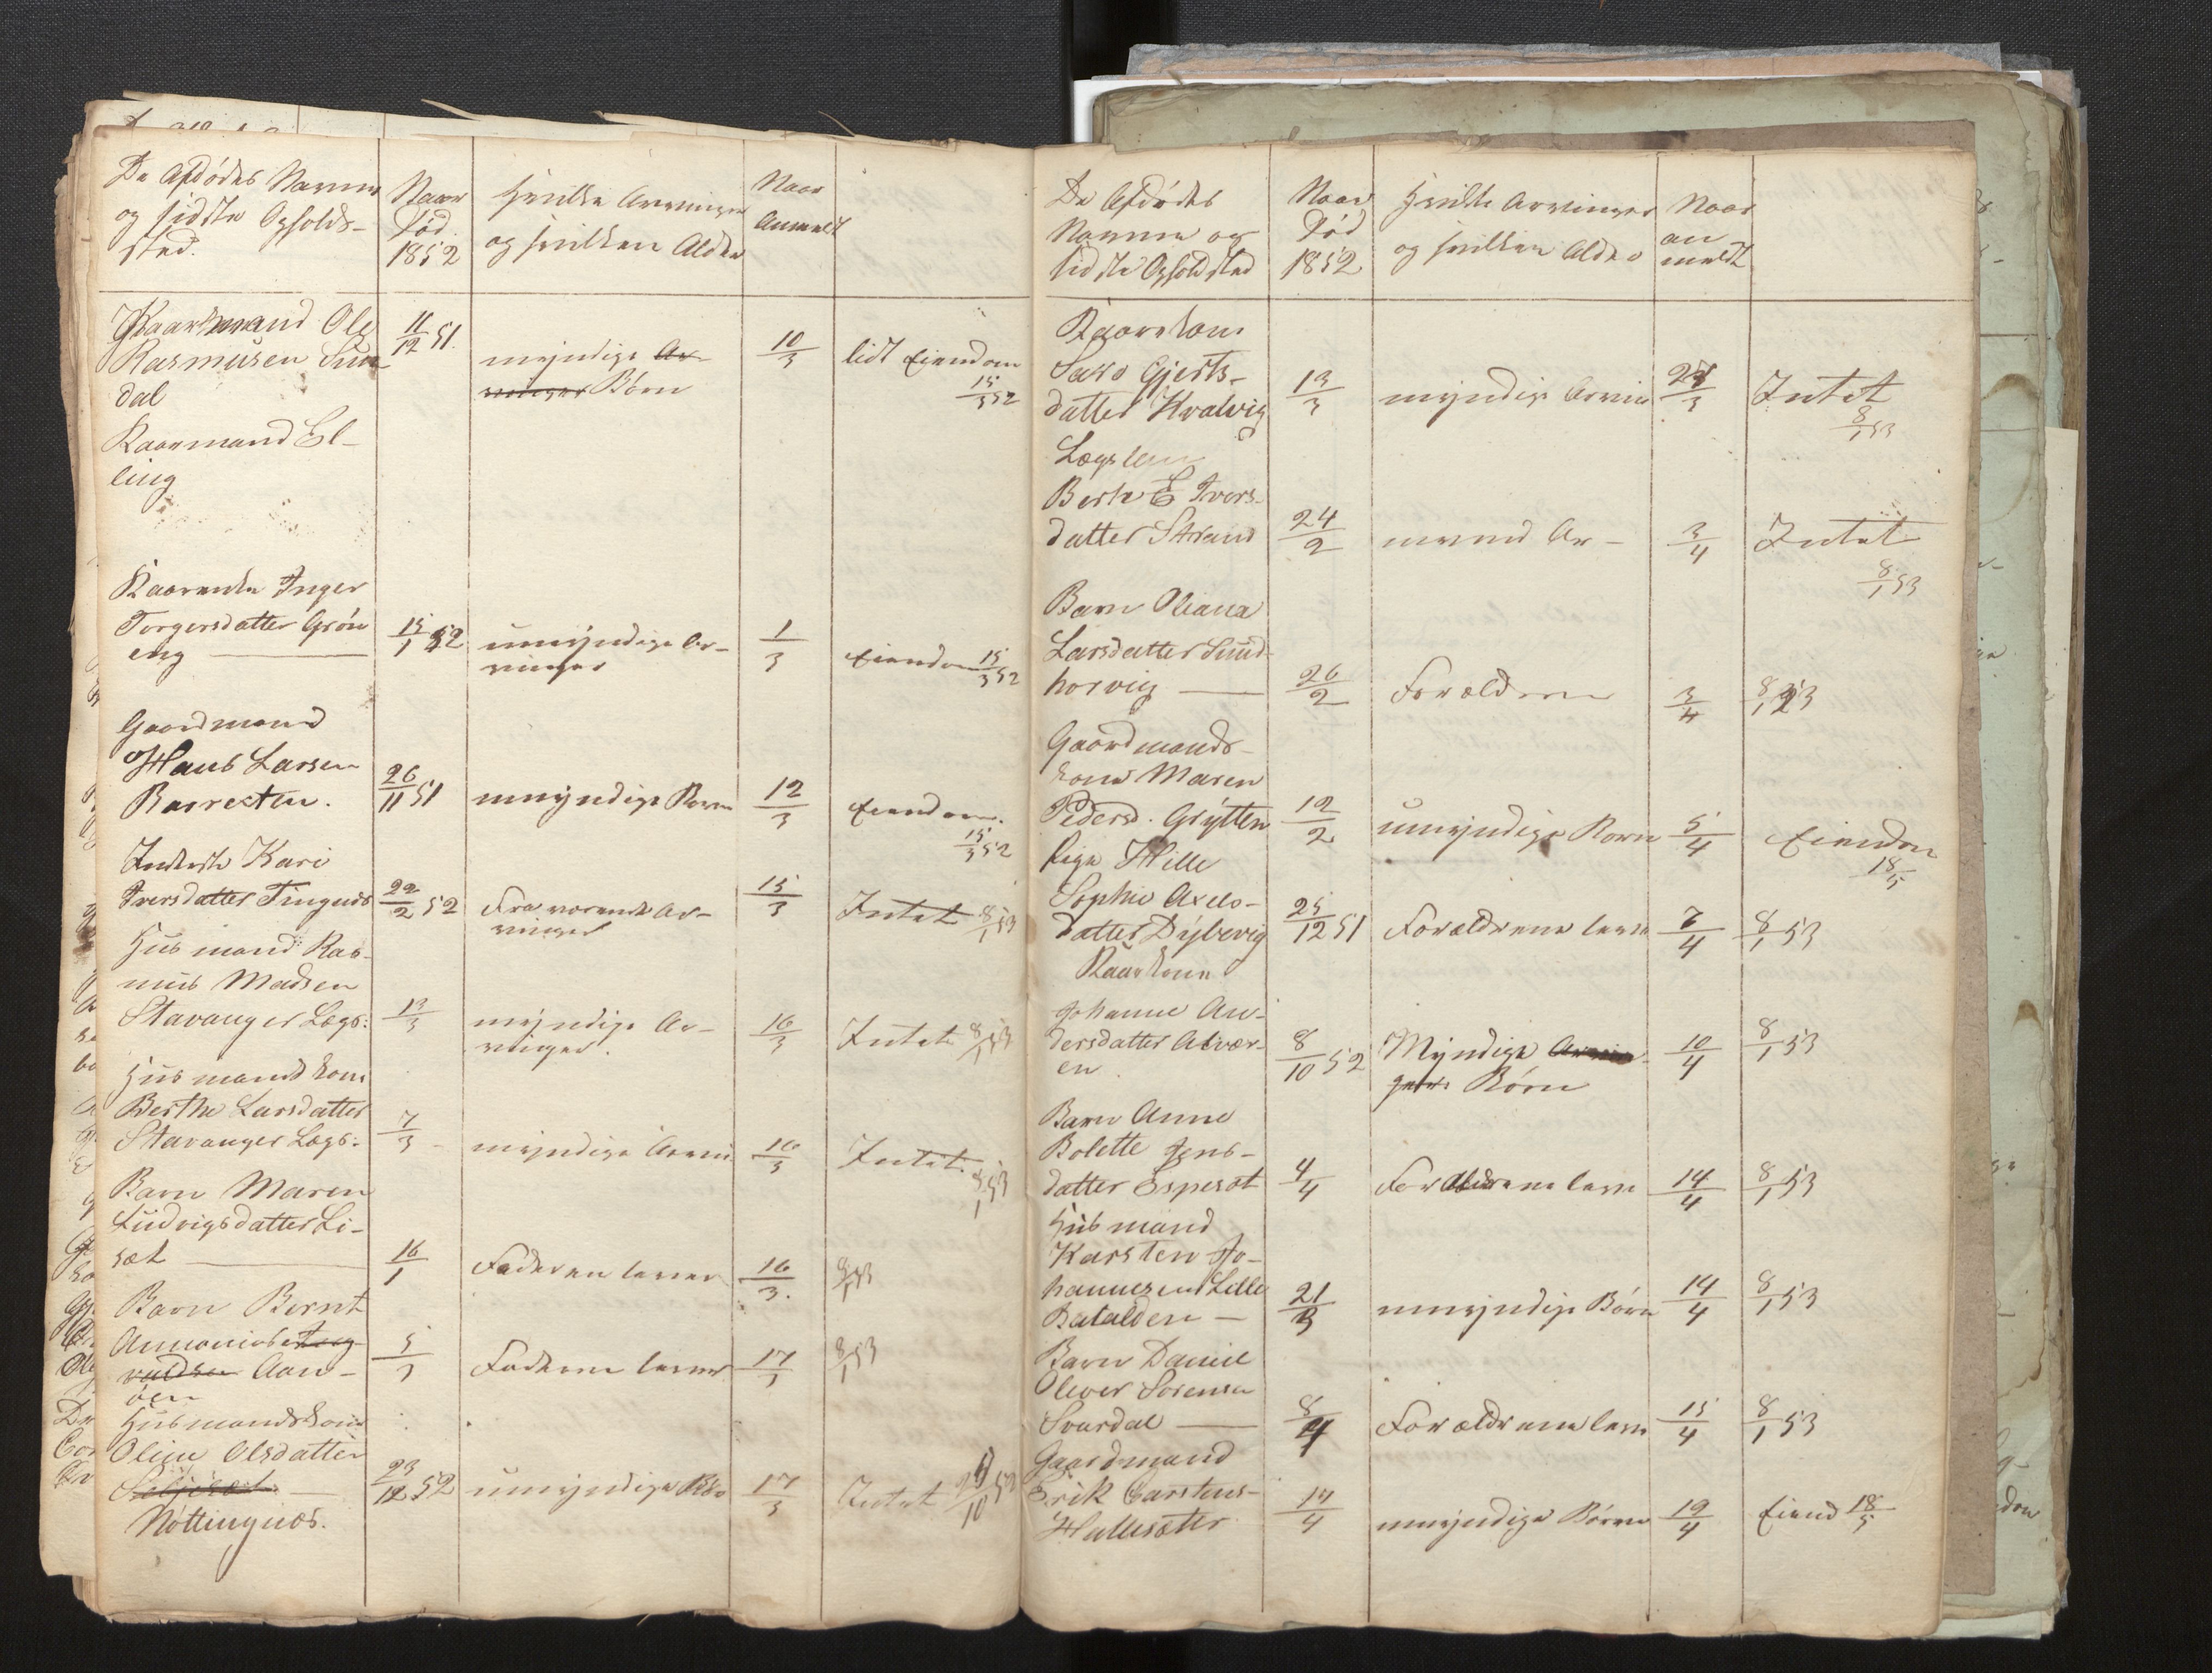 De Afdødes Navne
og sidste Opholds-
sted.
Naar
Død.
1852
Hvilke Arvinger
og hvilken Alder
Naar
Anmeldt
Kaarmand Ole
Rasmusen Sun
dal
11/12 51.
myndige Ar-
vinger Børn
10/3
lidt Eiendom
15/3 52
Kaarmand El-
ling
Kaarenke Inger
Torgersdatter Grøn
eng
15/1 52
umyndige Ar-
vinger
1/3
Eiendom 15/3 52
Gaardmand
Hans Larsen
Barresten.
26/11 51
umyndige Børn
12/3
Eiendom.
15/3 52
Inderste Kari
Iversdatter Tingnæs
22/2 52
Fraværende Ar-
vinger
15/3
Intet 8/1 53
Husmand Ras-
mus Madsen
Stavanger Lægs:
13/3
myndige Ar-
vinger.
16/3
Intet 8/1 53
Husmandskone
Berthe Larsdatter
Stavanger Lægs:
7/3
myndige Arvin
16/3
Intet.
8/1 53
Barn Maren
Ludvigsdatter Li-
sæt
16/1
Faderen lever
16/3.
8/1 53
Barn Bernt
Aan-
øen
Faderen lever
8/1 53
Husmandskone
Oline Olsdatter
Nøttingnæs.
52
umyndige Bø
17/3
Intet
De Afdødes
Navne og
sidste Opholdsted
Naar
Død
1852
Hvilke Arvinger
og hvilken Alder
Naar
an
meldt
Kaarekone
Gjerts-
datter Hvalvig
13/3
myndige Arvin
Intet
8/1 53
Lægslem
Berte E Ivers-
datter Strand
24/2
Ar-
3/4
Intet
8/1 53
Barn Oliana
Larsdatter Sund-
horvig
26/2
Forældrene
3/4
Gaardmands-
kone Maren
Pedersd. Grytten
12/2
umyndige Børn
5/4
Eiendom
18/5
Pige Hille
Sophie Axels-
datter Dybevig
25/12 51
Forældrene leve
7/4
8/1 53
Kaarkone
Johanne An-
dersdatter Alvær-
en
8/10 52
Myndige Arvin-
ger. Børn
10/4
8/1 53
Barn Anne
Bolette Jens-
datter Espesæt
4/4
Forældrene leve
14/4
8/1 53
Husmand
Karsten Jo-
hannesen Lille
Batalden
21/3
umyndige Børn
14/4
8/1 53
Barn Daniel
Oliver Sørensen
Svardal
Forældrene leve
15/4
8/1 53
Gaardmand
Erik Carstens-
Hallesæter
14/4
umyndige Børn
19/4
Eiend 18/5